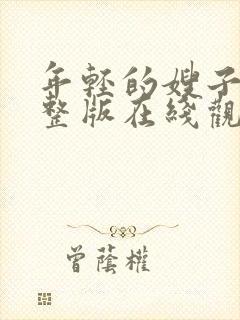 年轻的嫂子
整版在线觀
曾蔭權